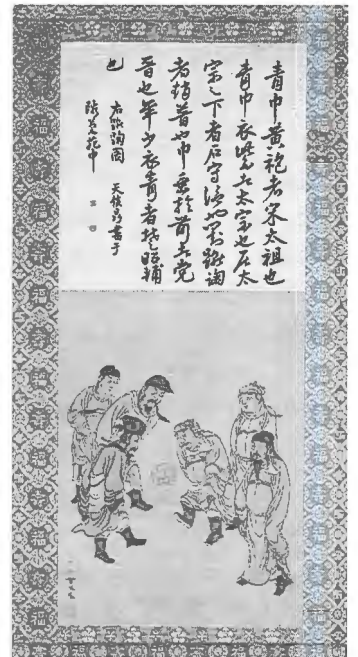 青巾黄袍者宋太祖也
青巾衣紫者太宗也居太
宗之下者石守信也對蹴踘
者趙普也巾垂於前者党
晋也年少衣青者楚昭輔
也
右蹴踘圖 書于
花中